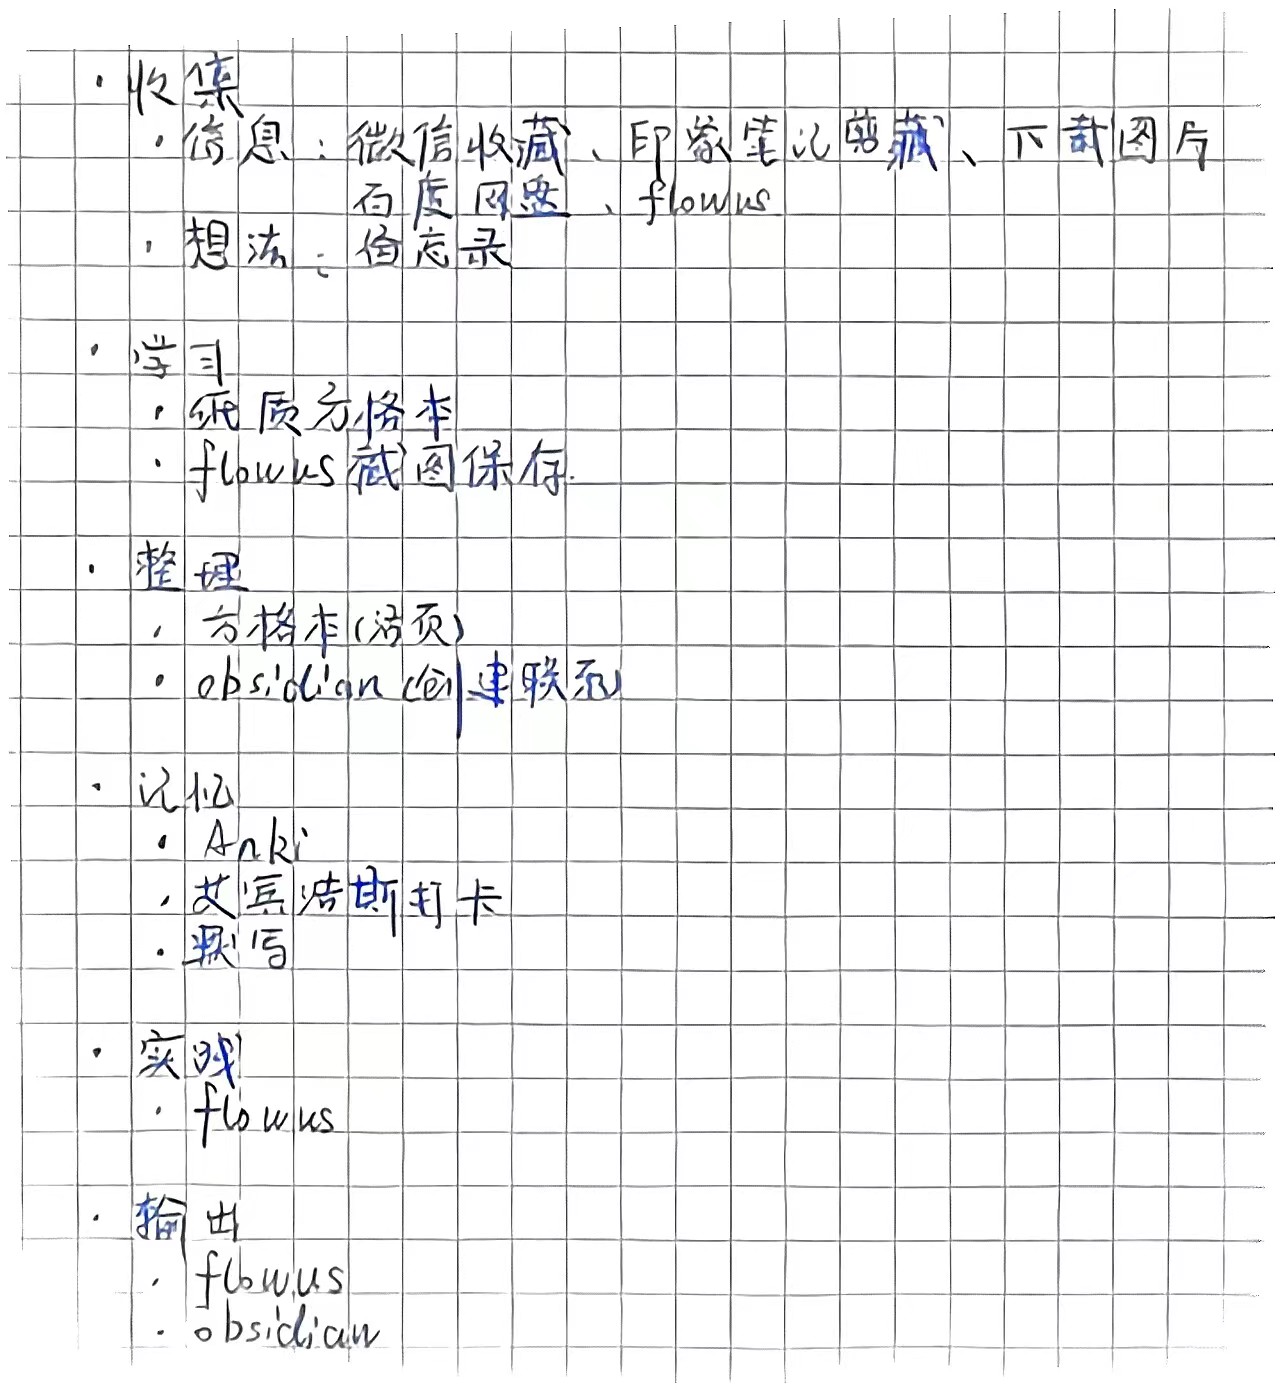 · 收集
· 信息：微信收藏、印象笔记剪藏、下载图片
百度网盘、flowus
· 想法：备忘录
· 学习
· 纸质方格本
· flowus截图保存.
· 整理
· 方格本(活页)
· obsidian 创建联系
· 记忆
· Anki
· 艾宾浩斯打卡
· 默写
· 实践
· flowus
· 输出
· flowus
· obsidian